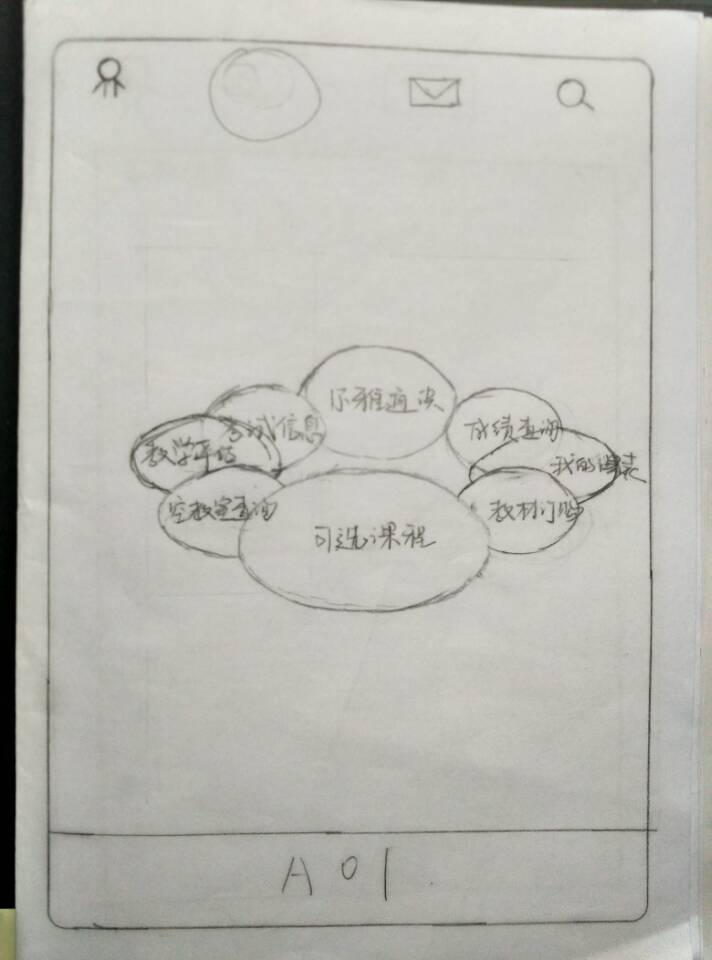 尔雅通识
考试信息
成绩查询
教学评估
我的课表
空教室查询
教材订购
可选课程
A01